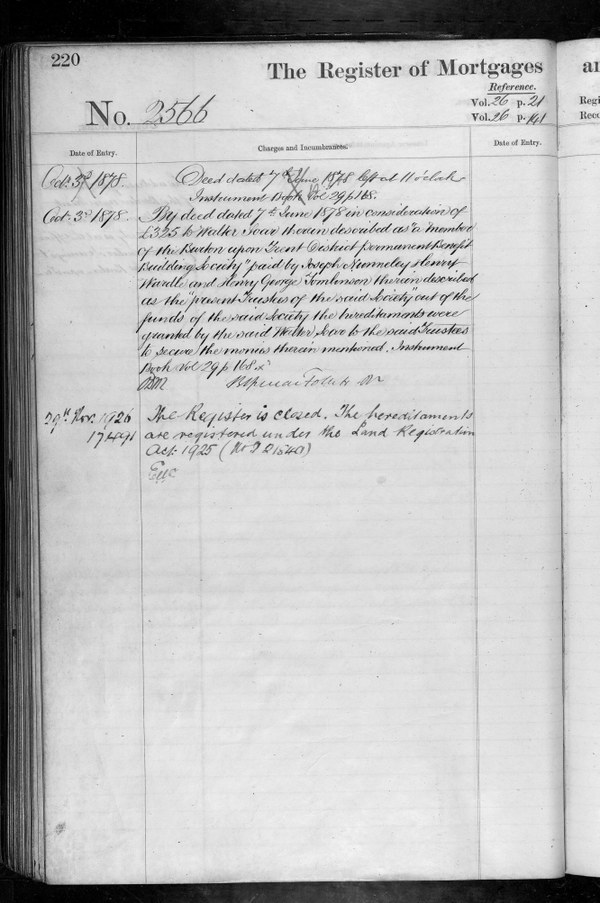 220
The Register of Mortgages
an
Reference.
No. 2566
Vol. 26 p. 21
Vol. 26 p. 141
Regi
Reco
Date of Entry.
Charges and Incumbrances.
Date of Entry.
Oct. 3d 1878.
Deed dated 7th June 1878 left at 11 o'clock
Instrument Book Vol 29 p 168.
Oct. 3d 1878.
By deed dated 7th June 1878 in consideration of
£325 to Walter therein described as "a member
of the Burton upon Trent District permanent Benefit
Building Society" paid by Joseph Henry
Wardle and Henry George Tomlinson therein described
as the "present Trustees of the said Society" out of the
funds of the said Society the hereditaments were
granted by the said Walter to the said Trustees
to secure the monies therein mentioned. Instrument
Book Vol 29 p 168.
29th Nov. 1926
The Register is closed. The hereditaments
are registered under the Land Registration
Act 1925